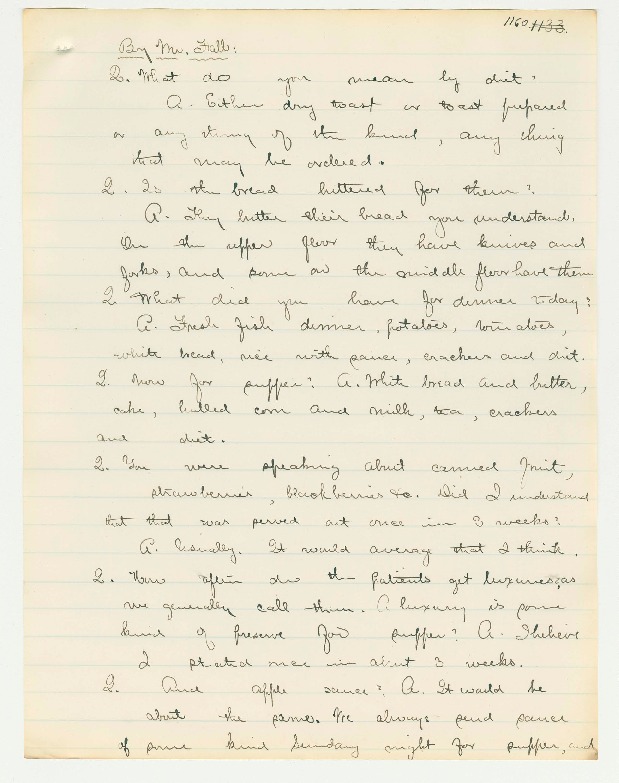 1160 1133.
By Mr. Fall:
Q. What do you mean by diet?
A. Either dry toast or toast prepared
or any thing of the kind, any thing
that may be ordered.
Q. Is the bread buttered for them?
A. They butter their bread you understand.
On the upper floor they have knives and
forks, and some on the middle floor have them
Q What did you have for dinner today?
A. Fresh fish dinner, potatoes, tomatoes,
white bread, rice with sauce, crackers and diet.
Q. Now for supper? A. White bread and butter,
cake, hulled corn and milk, tea, crackers
and diet.
Q. You were speaking about canned fruit,
strawberries, blackberries &c. Did I understand
that that was served out once in 3 weeks?
A. Usually. It would average that I think.
Q. How often do the patients get luxuries, as
we generally call them. A luxury is some
kind of preserve for supper? A. I believe
I stated once in about 3 weeks.
Q. And apple sauce? A. It would be
about the same. We always send sauce
of some kind Sunday night for supper, and